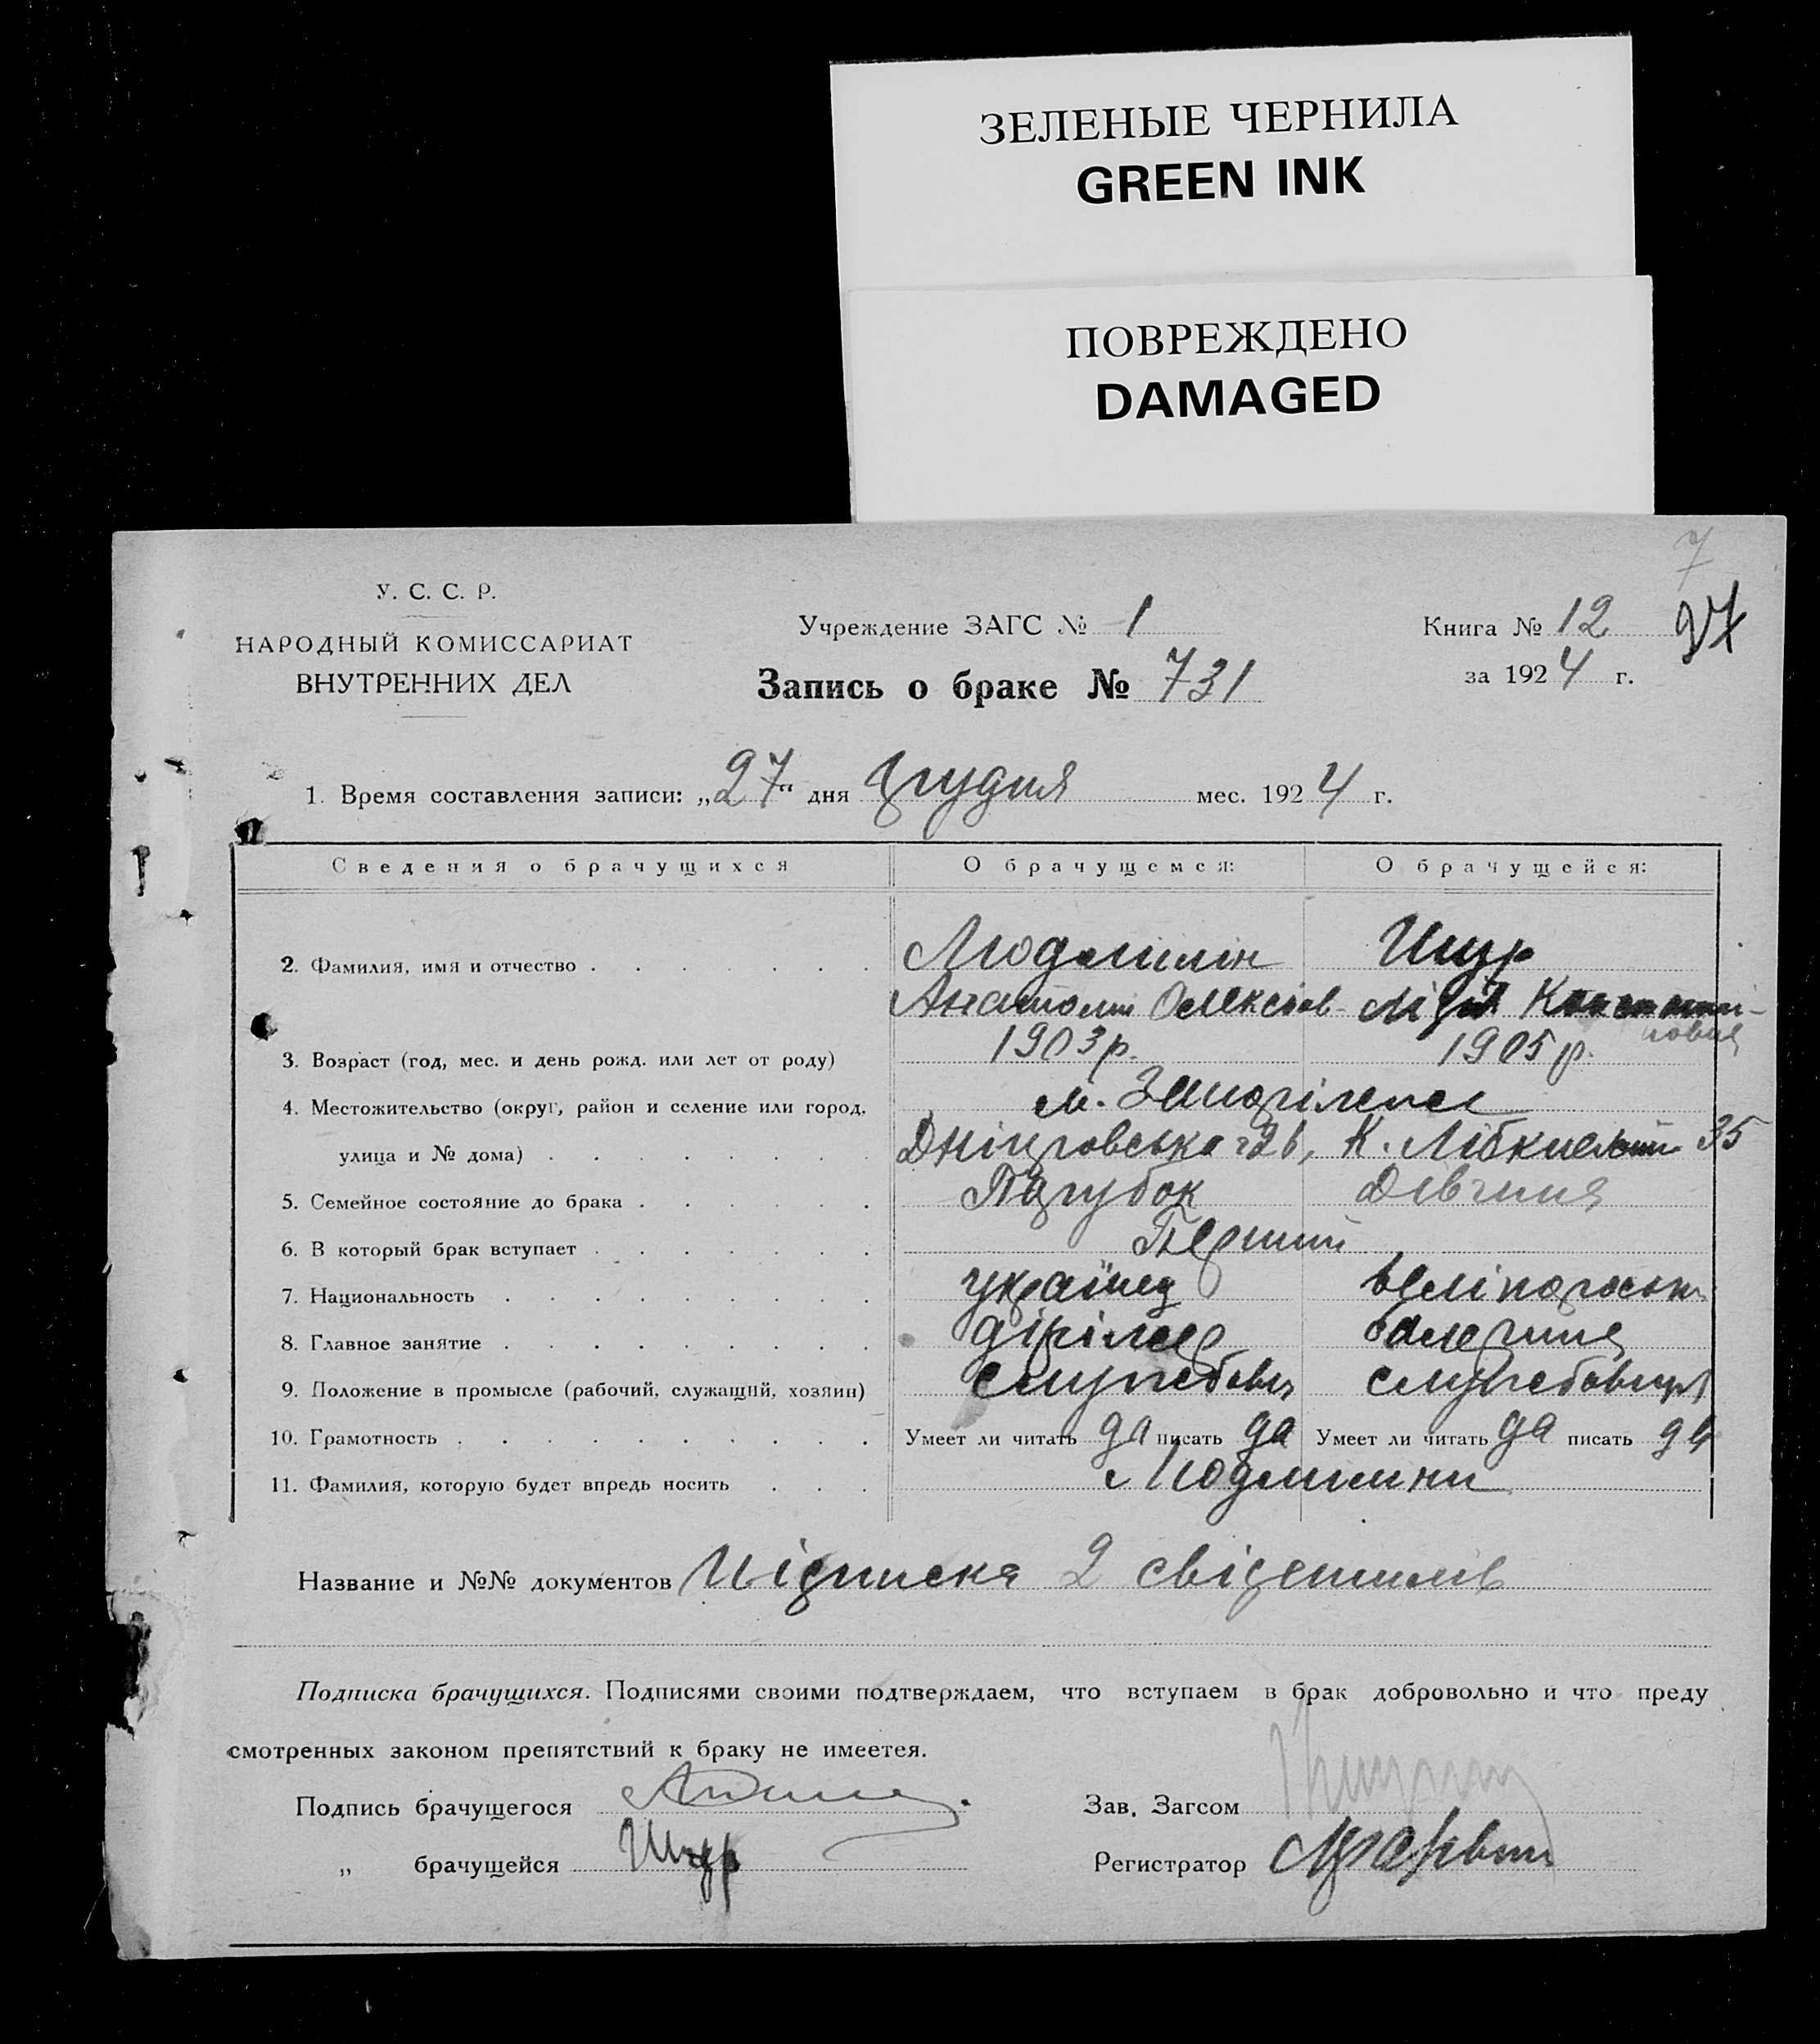 ЗЕЛЕНЫЕ ЧЕРНИЛА
GREEN INK
ПОВРЕЖДЕНО
DAMAGED
7
У. С. С. Р.
НАРОДНЫЙ КОМИССАРИАТ
ВНУТРЕННИХ ДЕЛ
Учреждение ЗАГС № 1
Запись о браке № 731
Книга № 12 27
за 1924 г.
1. Время составления записи: „27“ дня грудня мес. 1924 г.
Сведения о брачущихся О брачущемся: О брачущейся:
2. Фамилия, имя и отчество Людмілін Щур
Анатолій Олексіов- Лідія Константи-
новна
3. Возраст (год, мес. и день рожд. или лет от роду) 1903 р. 1905 р.
4. Местожительство (округ, район и селение или город, м. Запоріжжє
улица и № дома) Дніпровська 26, К. Лібкнехта 35
5. Семейное состояние до брака Парубок Дівчина
6. В который брак вступает Перший
7. Национальность українец великороська
8. Главное занятие балерина
9. Положение в промысле (рабочий, служащий, хозяин) службовец службовиця
10. Грамотность Умеет ли читать да писать да Умеет ли читать да писать да
11. Фамилия, которую будет впредь носить Людмилини
Название и №№ документов Підписка 2 свідетилів
Подписка брачущихся. Подписями своими подтверждаем, что вступаем в брак добровольно и что преду
смотренных законом препятствий к браку не имеетея.
Подпись брачущегося Зав. Загсом
„ брачущейся Щур Регистратор